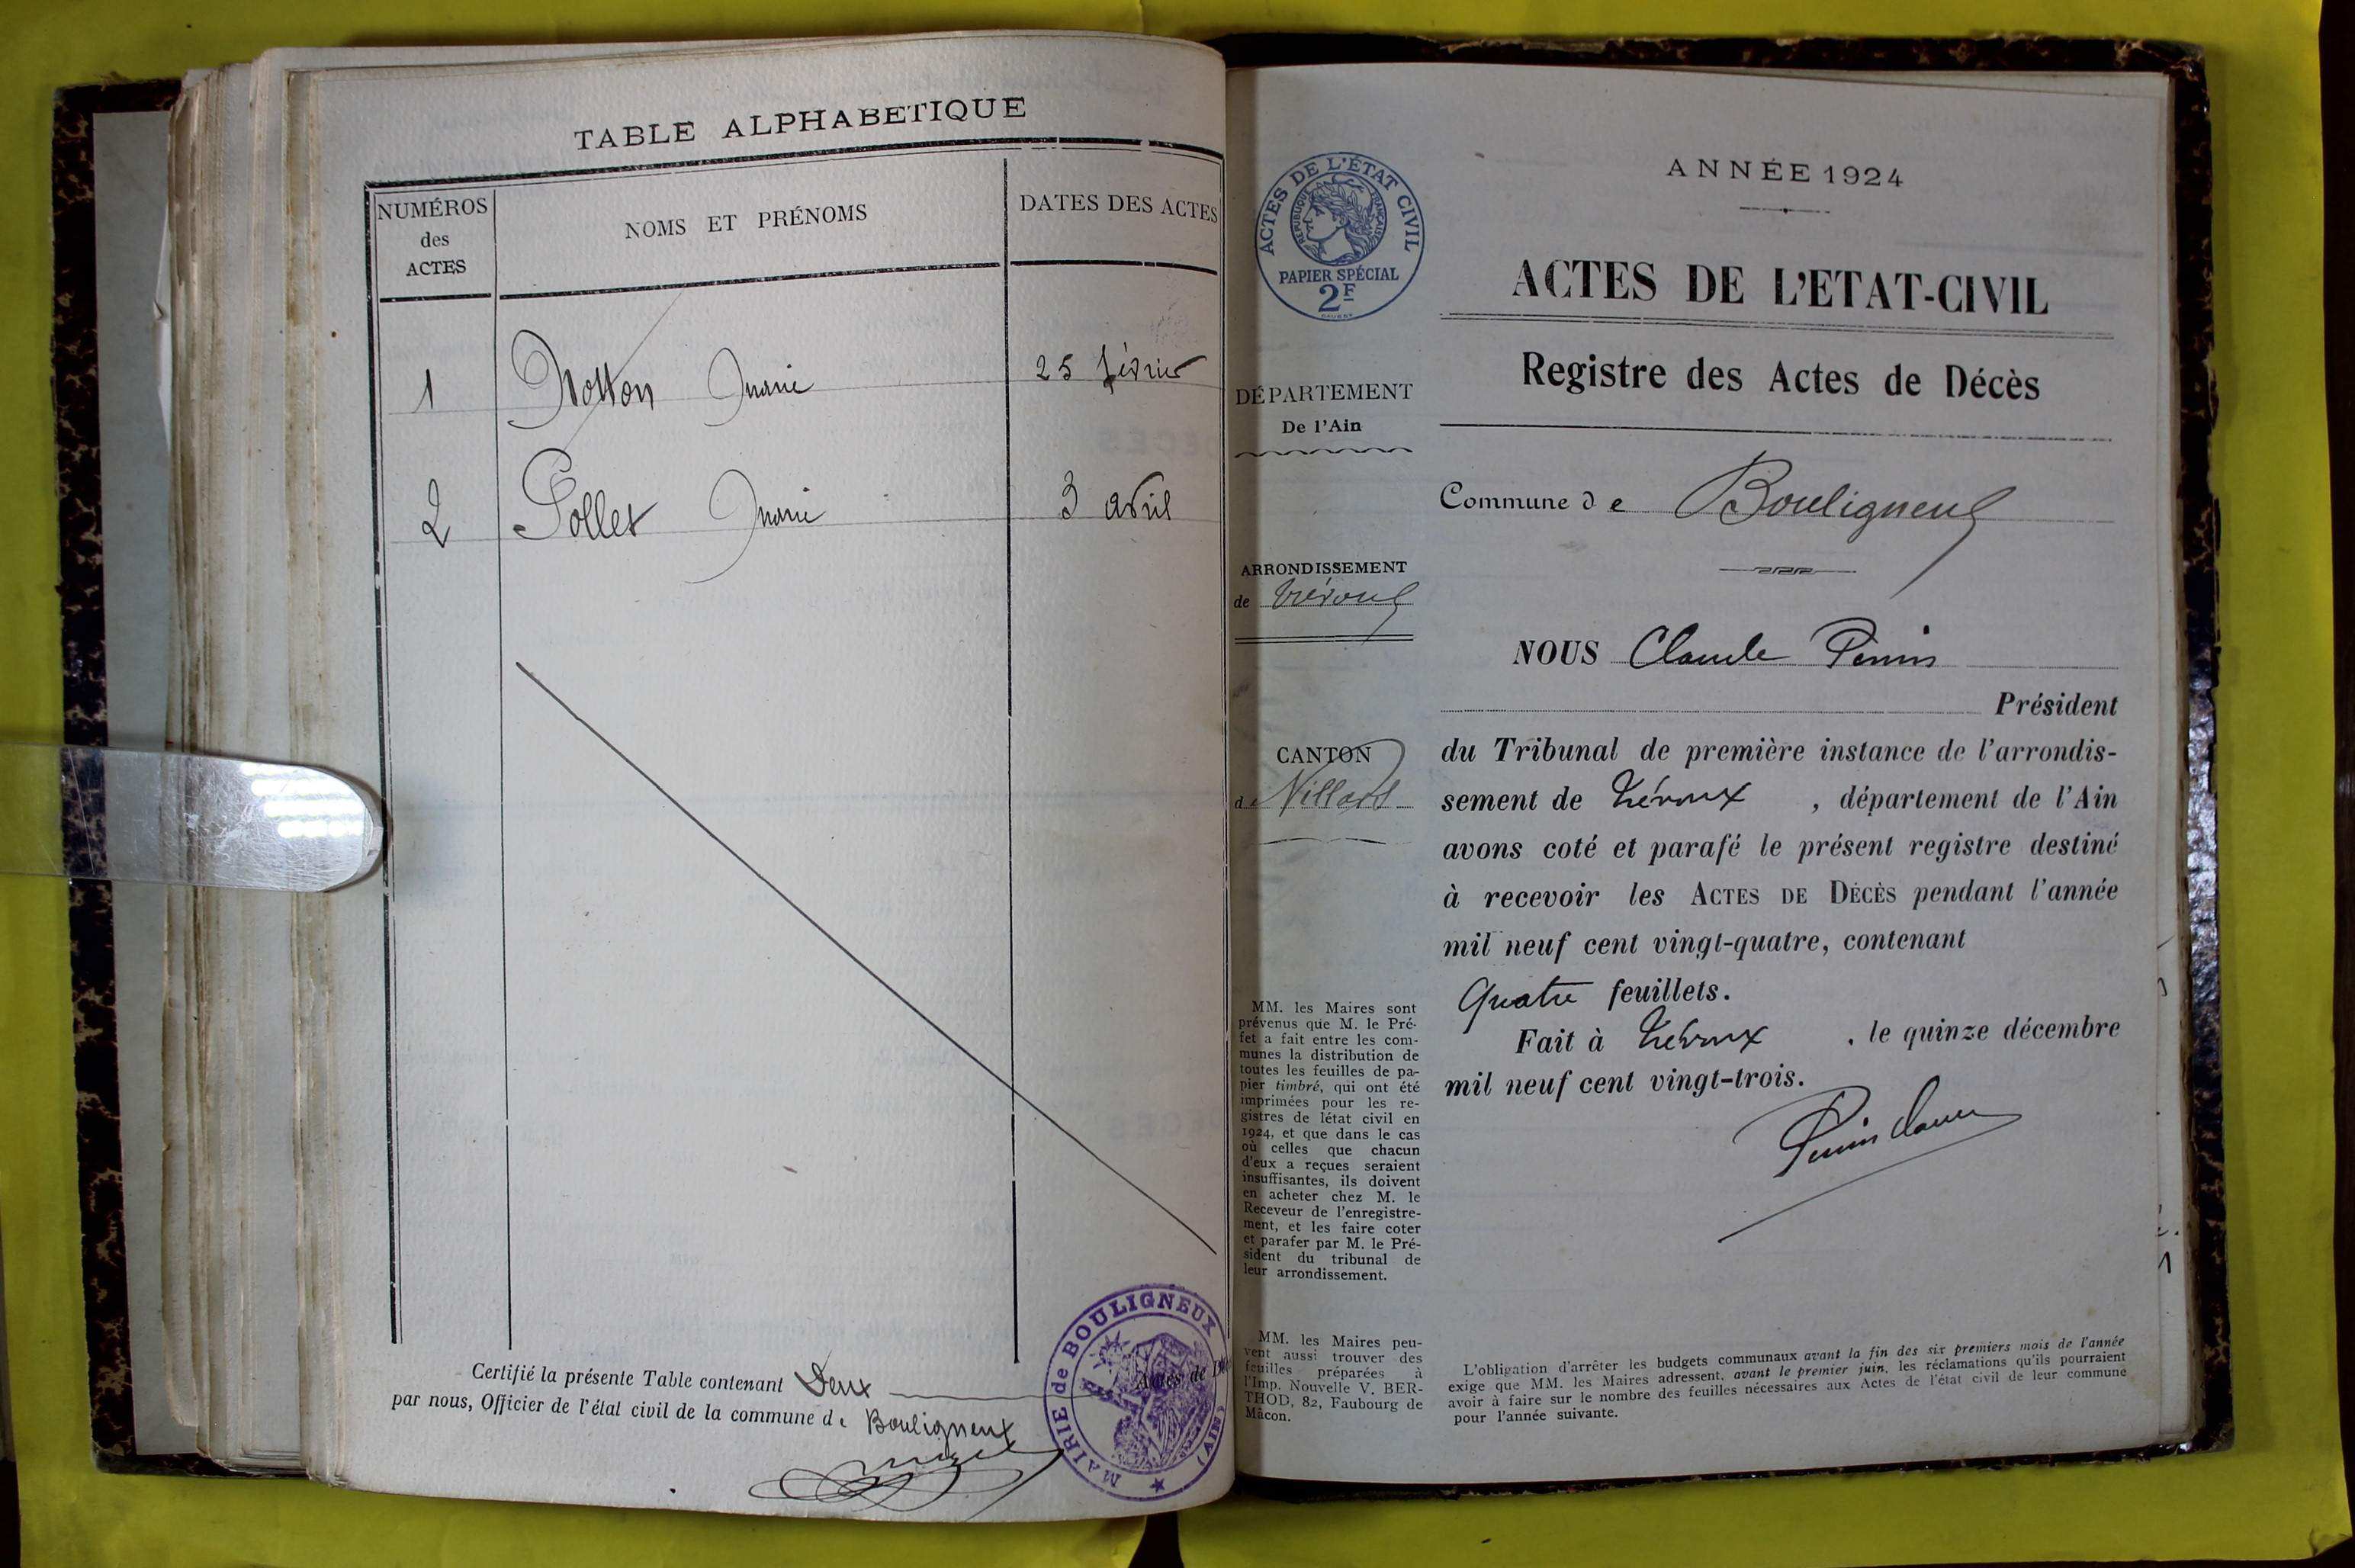 TABLE ALPHABETIQUE
NUMÉROS
des
ACTES
NOMS ET PRÉNOMS
DATES DES ACTES
1 Marie 25 février
2 Pollet Marie 3 avril
Certifié la présente Table contenant Deux Actes de Dé
par nous, Officier de l'état civil de la commune de Bouligneux
MAIRIE de BOULIGNEUX
(AIN)
ACTES DE L'ÉTAT CIVIL
RÉPUBLIQUE FRANÇAISE
PAPIER SPÉCIAL
2F
DÉPARTEMENT
De l'Ain
ARRONDISSEMENT
de Trévoux
CANTON
de Villars
MM. les Maires sont
prévenus que M. le Pré-
fet a fait entre les com-
munes la distribution de
toutes les feuilles de pa-
pier timbré, qui ont été
imprimées pour les re-
gistres de létat civil en
1924, et que dans le cas
où celles que chacun
d'eux a reçues seraient
insuffisantes, ils doivent
en acheter chez M. le
Receveur de l'enregistre-
ment, et les faire coter
et parafer par M. le Pré-
sident du tribunal de
leur arrondissement.
MM. les Maires peu-
vent aussi trouver des
feuilles préparées à
l'Imp. Nouvelle V. BER-
THOD, 82, Faubourg de
Mâcon.
ANNÉE 1924
ACTES DE L'ETAT-CIVIL
Registre des Actes de Décès
Commune de Bouligneux
NOUS Claude Perrin
Président
du Tribunal de première instance de l'arrondis-
sement de Trévoux, département de l'Ain
avons coté et parafé le présent registre destiné
à recevoir les ACTES DE DÉCÈS pendant l'année
mil neuf cent vingt-quatre, contenant
Quatre feuillets.
Fait à Trévoux, le quinze décembre
mil neuf cent vingt-trois.
L'obligation d'arrêter les budgets communaux avant la fin des six premiers mois de l'année
exige que MM. les Maires adressent, avant le premier juin, les réclamations qu'ils pourraient
avoir à faire sur le nombre des feuilles nécessaires aux Actes de l'état civil de leur commune
pour l'année suivante.